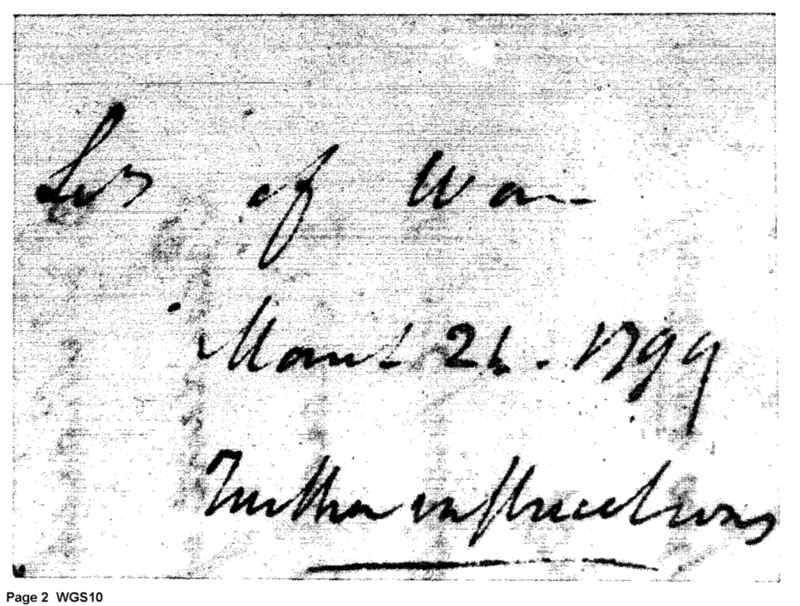 of War
March 1799
Further instructions
Page 2 WGS10